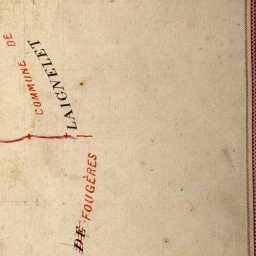 COMMUNE DE
LAIGNELET
DE FOUGÈRES